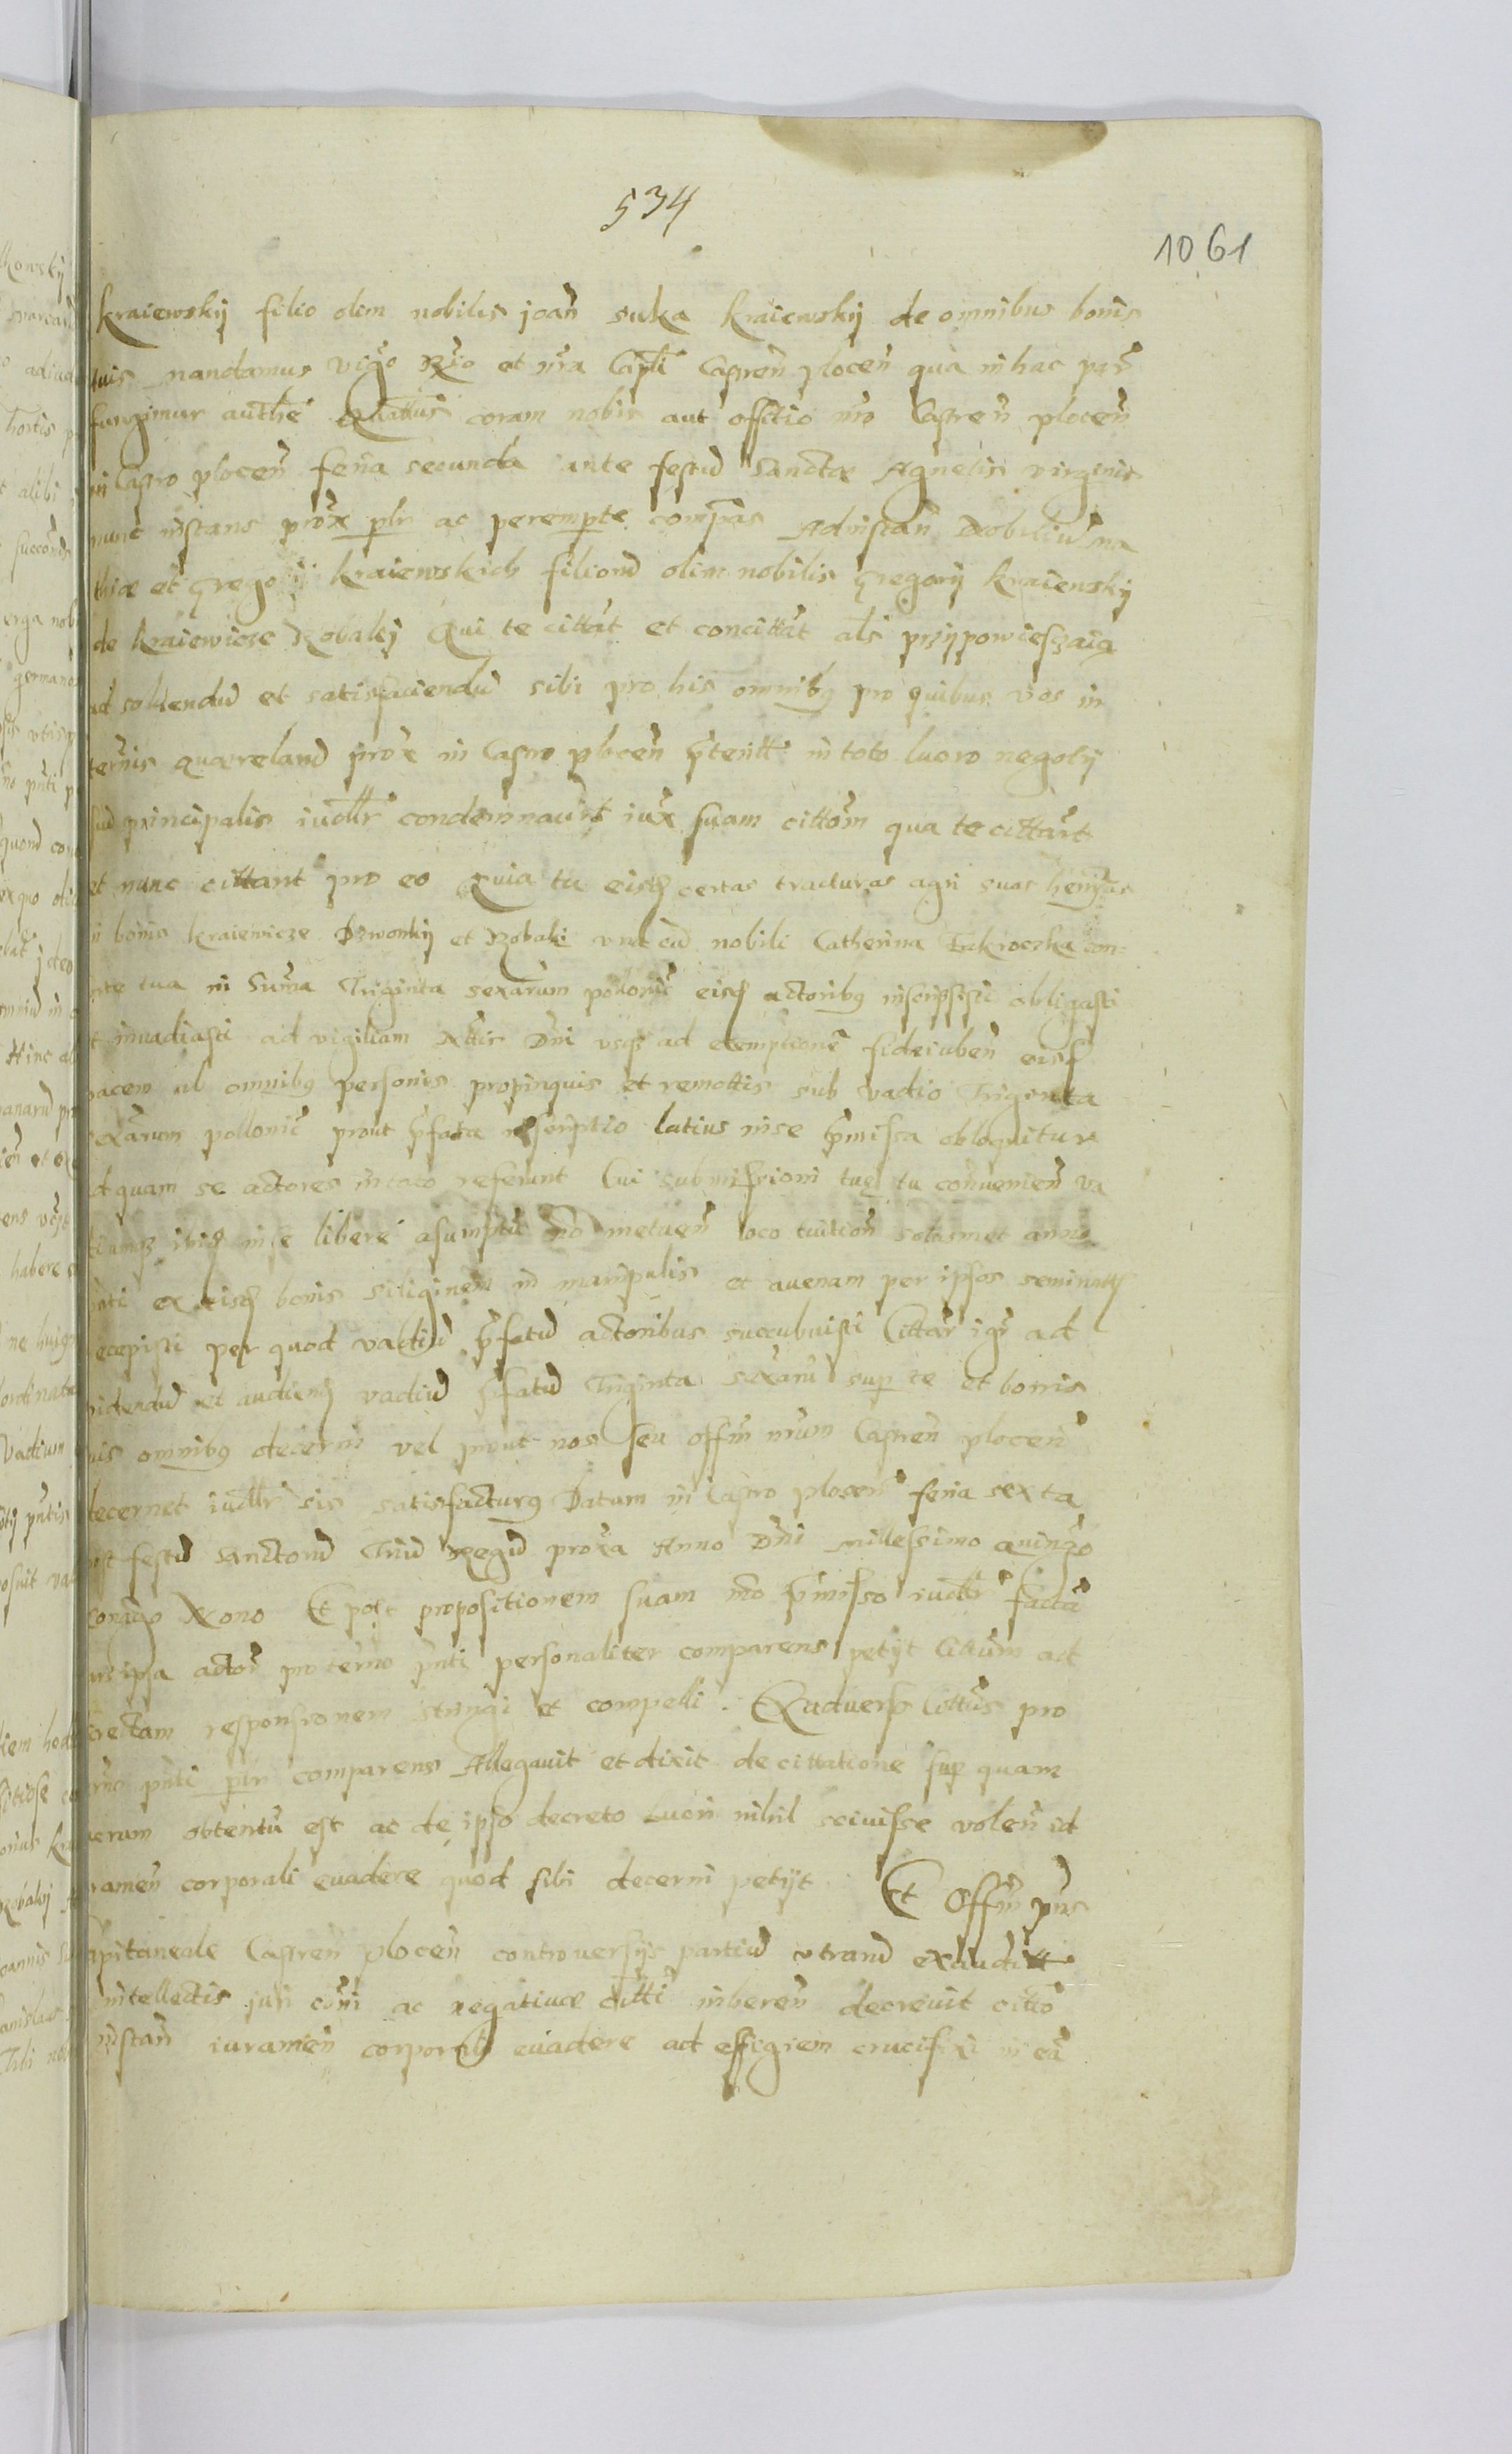 534
1061
kraiewskij filio olim nobilis joan̄ suka kraiewskij de omnibus bonis
tuis mandamus vigo Rgio et nr̄a Capli Capren̄ plocen̄ qua in hac par̄
fungimur authe Quattus coram nobis aut offitio nr̄o Castren̄ plocen̄
in Castro plocen̄ feria secunda ante festu Sanctæ Agnetis virginis
nunc instans prox plr ac perempte compas Ad instan̄ Nobiliu ma
thiæ et gregorij kraiewskich filioru olim nobilis gregorij kraiewskij
de kraiewicze kobalki Qui te cittat et concittat als przypowiesczaią
ad soluendu et satisfaciendu sibi pro his omnibq pro quibus vos in
ternis quærelaru prox in Castro plocen̄ ptentt in toto lucro negotij
sui principalis iudlr condemnaurt iux suam cittom qua te cittart
et nunc cittant pro eo Quia tu eisq certas traduras agri suas
in bonis kraiewicze Dzwonkij et kobalki vna cu nobili Catherina Zakroczka con=
te tua in Suma Triginta sexarum polonic eisq actoribq inscripsisti obligasti
et inuadiasti ad vigiliam Dni vsqz ad exemptione fideiuben̄ eisq
pacem ab omnibq personis propinquis et remottis sub vadio Triginta
sexarum pollonic prout pfata inscriptio latius in se pmissa obloquitur
ad quam se actores in toto referunt Cui submissioni tuæ tu conuenien̄ va
diumqz ibiq in se libere asumptu no metuen̄ loco tuition solusmet anno
pnti ex eisq bonis siliginem in manipulis et auenam per ipsos seminatt
recepisti per quod vadiu pfatu actoribus succubuisti Cittar igr ad
videndu et audienq vadiu pfatu Triginta sexaru sup te et bonis
tuis omnibq decerni vel prout nos seu offm nrum Castren̄ plocen̄
decernet iudlr sis satisfacturq Datum in Castro plocen̄ feria sexta
post festu sanctoru Triu Regu proxa Anno Dni millessimo quingo
Nono Et post propositionem suam mo pmisso iudlr facta
pars ipsa actor pro termo pnti personaliter comparens petijt Cittum ad
directam responsionem stringi et compelli. Exaduerso Cittus pro
termo pnti plr comparens Allegauit et dixit de cittatione sup quam
lucrum obtentu est ac de ipso decreto lucri nihil sciuisse volen̄ id
iuramen̄ corporali euadere quod sibi decerni petijt. Et Offm pns
capitaneale Castren̄ plocen̄ controuersijs partiu vtraru exauditt
intellectis juri coni ac negatiuæ citti inheren̄ decreuit citto
instan̄ iuramen̄ corporali euadere ad effigiem crucifixi in ea